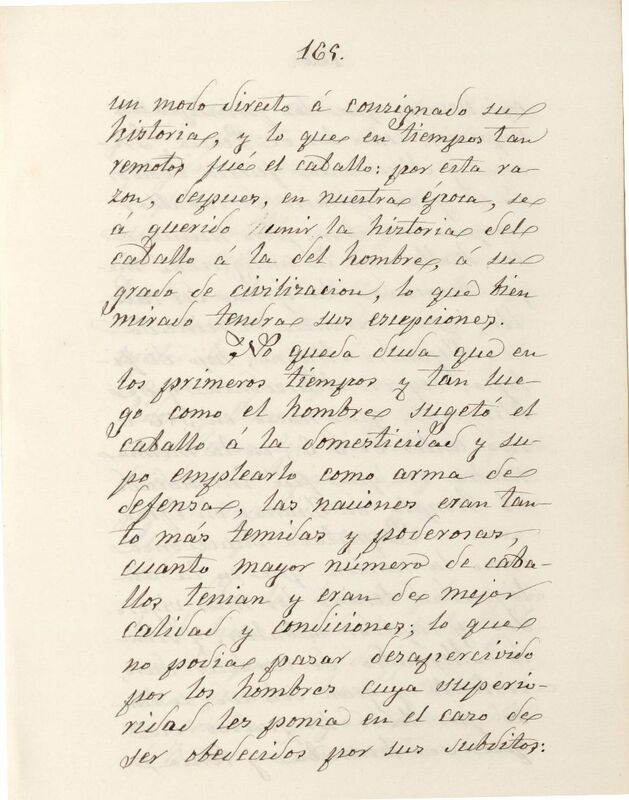 165.
un modo directo á consignado su
historia, y lo que en tiempos tan
remotos fué el caballo: por esta ra-
zon, despues, en nuestra época, se
á querido unir la historia del
caballo á la del hombre, á su
grado de civilizacion, lo que bien
mirado tendra sus escepciones.
No queda duda que en
los primeros tiempos y tan lue-
go como el hombre sugetó el
caballo á la domesticidad y su-
po emplearlo como arma de
defensa, las naciones eran tan-
to más temidas y poderosas,
cuanto mayor número de caba-
llos tenian y eran de mejor
calidad y condiciones; lo que
no podia pasar desapercivido
por los hombres cuya superio-
ridad les ponia en el caso de
ser obedecidos por sus subditos: